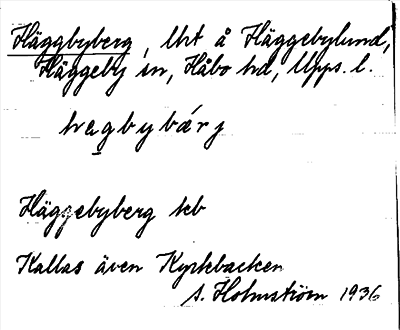 Häggbyberg, lht å Häggebylund,
Häggeby sn, Håbo hd, Upps. l.
hagbybárj
Häggebyberg kb
Kallas även Kyrkbacken
S. Holmström 1936